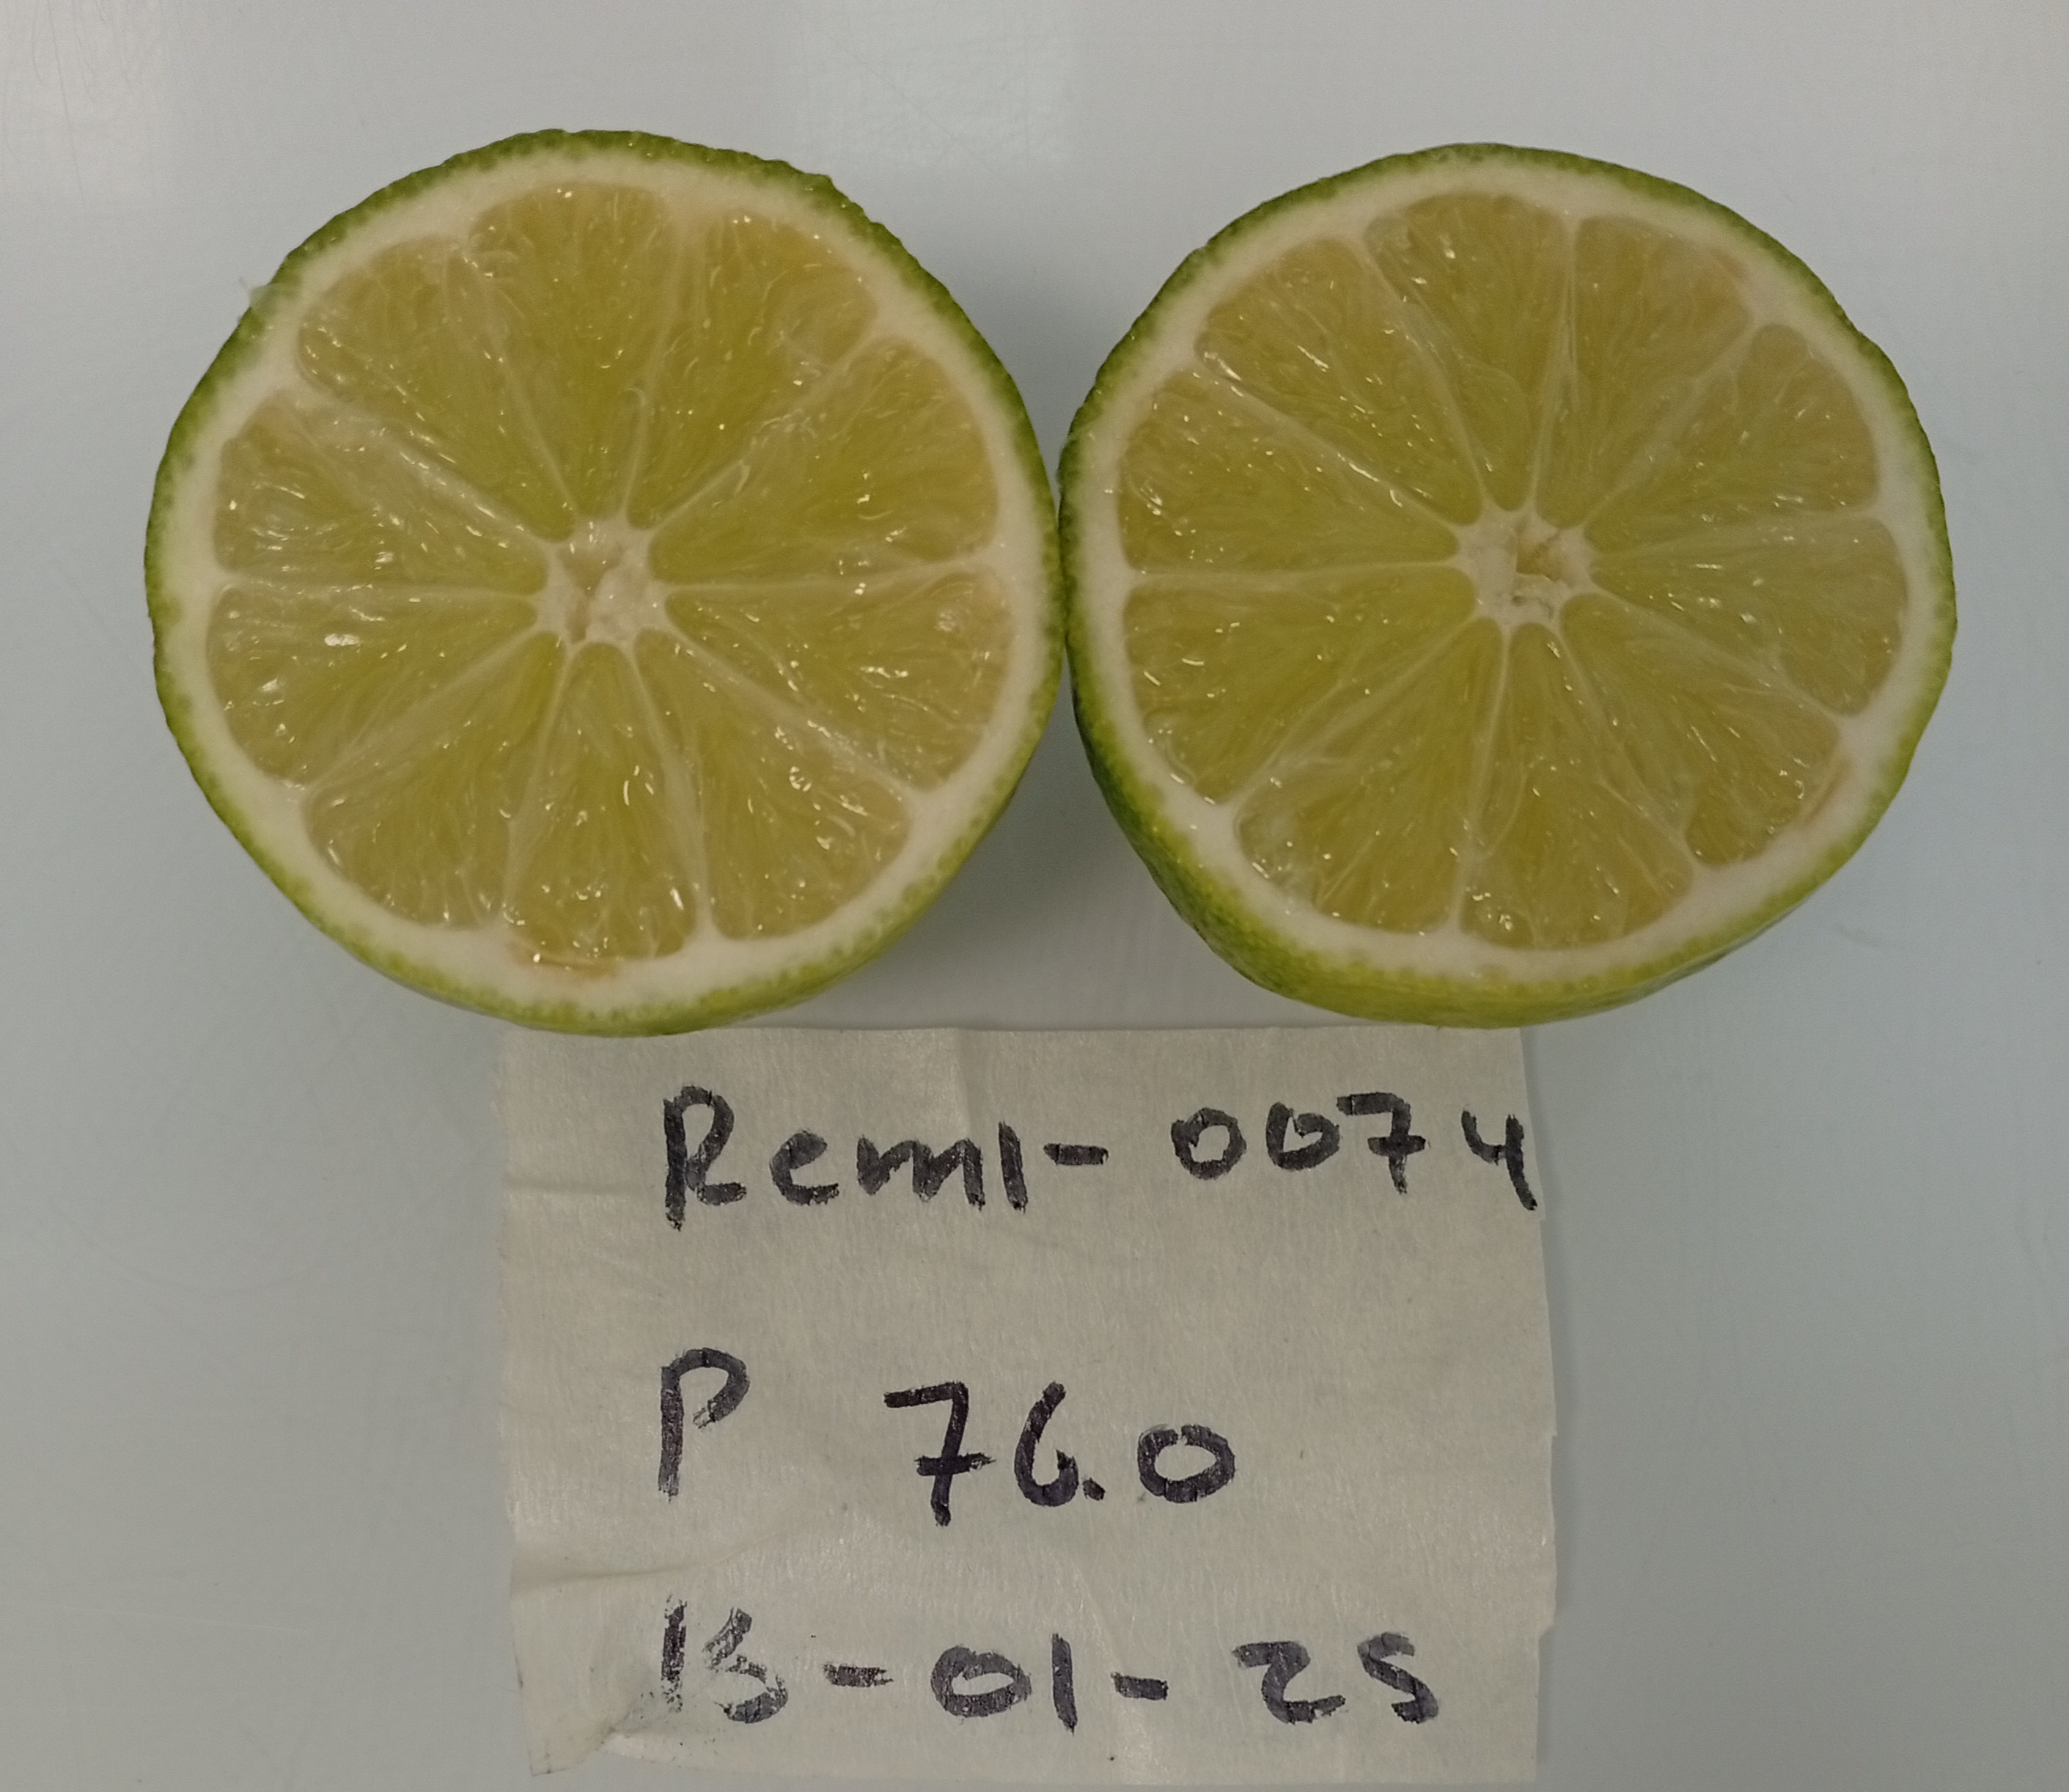 Remi-0074
P 76.0
13-01-25